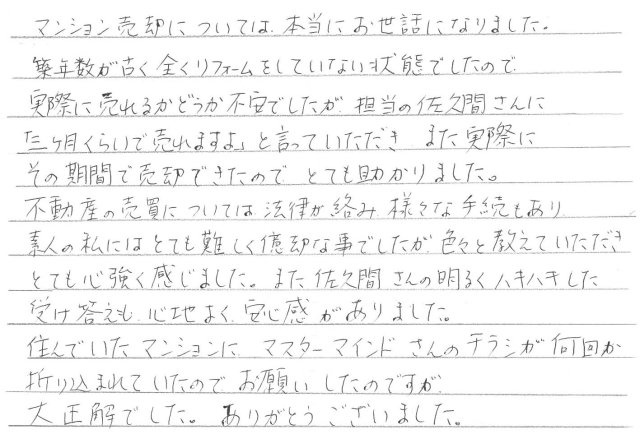 マンション売却については、本当にお世話になりました。
築年数が古く全くリフォームをしていない状態でしたので
実際に売れるかどうか不安でしたが、担当の佐久間さんに
「三ヶ月くらいで売れますよ」と言っていただき また実際に
その期間で売却できたので とても助かりました。
不動産の売買については法律が絡み 様々な手続もあり
素人の私にはとても難しく億却な事でしたが、色々と教えていただき
とても心強く感じました。また 佐久間さんの明るくハキハキした
受け答えも、心地よく、安心感がありました。
住んでいたマンションに、マスターマインドさんのチラシが何回か
折り込まれていたので お願いしたのですが、
大正解でした。ありがとうございました。